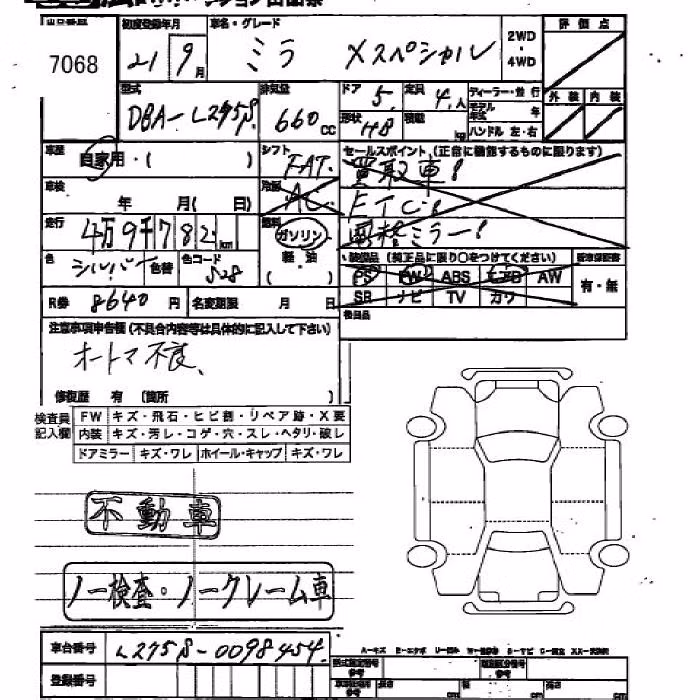 7068
初度登録年月 車名・グレード 評価点
21 9月 ミラ Xスペシャル 2WD・4WD
外装 内装
型式 排気量 ドア 定員 ディーラー・並行
DBA-L275S 660cc 5 4人 モデル年式 年
形状 HB 積載 kg ハンドル 左・右
車歴 シフト セールスポイント(正常に機能するものに限ります)
自家用・( ) FAT 買取車!
車検 冷房
年 月( 日) AC ETC!
走行 燃料
4万9千782km ガソリン 電格ミラー!
色 色替 色コード 軽油 装備品(純正品に限り○をつけてください) 新車保証書
シルバー S28 PS PW ABS エアB AW 有・無
R券 8640円 名変期限 月 日 SR ナビ TV カワ
後日品
注意事項申告欄(不具合内容等は具体的に記入して下さい)
オートマ不良、
修復歴 有(箇所
検査員記入欄 FW キズ・飛石・ヒビ割・リペア跡・X要
内装 キズ・汚レ・コゲ・穴・スレ・ヘタリ・破レ
ドアミラー キズ・ワレ ホイール・キャップ キズ・ワレ
不動車
ノー検査・ノークレーム車
車台番号 L275S-0098454
登録番号